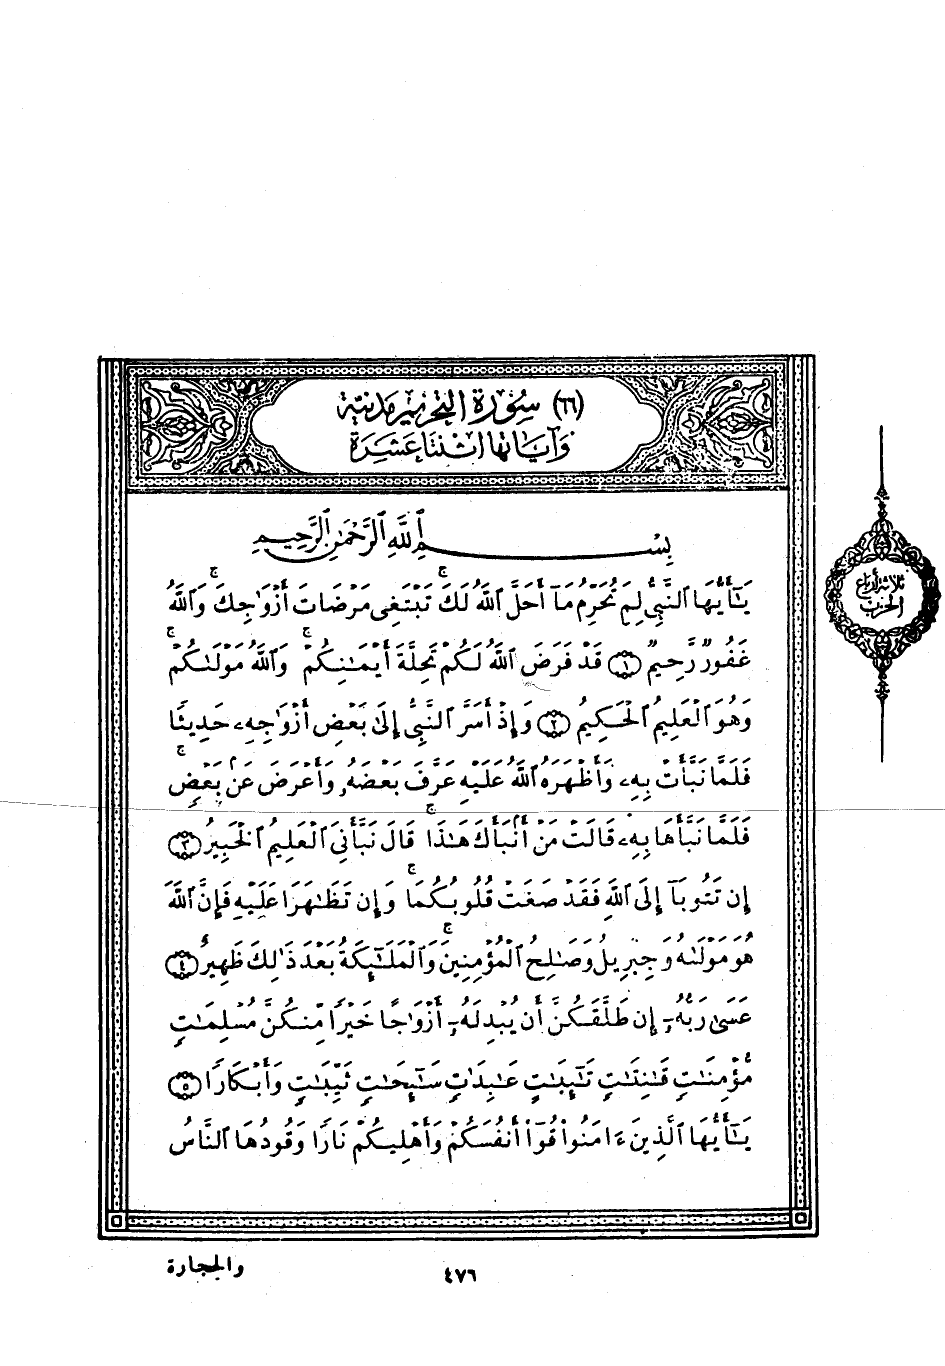 (٦٦) سُورَةُ التَّحْرِيمِ مَدَنِيَّة
وَآيَاتُهَا اثْنَتَا عَشَرَة
بِسْمِ اللَّهِ الرَّحْمَٰنِ الرَّحِيمِ
يَٰٓأَيُّهَا ٱلنَّبِيُّ لِمَ تُحَرِّمُ مَآ أَحَلَّ ٱللَّهُ لَكَۖ تَبْتَغِي مَرْضَاتَ أَزْوَٰجِكَۚ وَٱللَّهُ
غَفُورٌ رَّحِيمٌ ١ قَدْ فَرَضَ ٱللَّهُ لَكُمْ تَحِلَّةَ أَيْمَٰنِكُمْۚ وَٱللَّهُ مَوْلَىٰكُمْۖ
وَهُوَ ٱلْعَلِيمُ ٱلْحَكِيمُ ٢ وَإِذْ أَسَرَّ ٱلنَّبِيُّ إِلَىٰ بَعْضِ أَزْوَٰجِهِۦ حَدِيثًا
فَلَمَّا نَبَّأَتْ بِهِۦ وَأَظْهَرَهُ ٱللَّهُ عَلَيْهِ عَرَّفَ بَعْضَهُۥ وَأَعْرَضَ عَنۢ بَعْضٍۖ
فَلَمَّا نَبَّأَهَا بِهِۦ قَالَتْ مَنْ أَنۢبَأَكَ هَٰذَاۖ قَالَ نَبَّأَنِيَ ٱلْعَلِيمُ ٱلْخَبِيرُ ٣
إِن تَتُوبَآ إِلَى ٱللَّهِ فَقَدْ صَغَتْ قُلُوبُكُمَاۖ وَإِن تَظَٰهَرَا عَلَيْهِ فَإِنَّ ٱللَّهَ
هُوَ مَوْلَىٰهُ وَجِبْرِيلُ وَصَٰلِحُ ٱلْمُؤْمِنِينَۖ وَٱلْمَلَٰٓئِكَةُ بَعْدَ ذَٰلِكَ ظَهِيرٌ ٤
عَسَىٰ رَبُّهُۥٓ إِن طَلَّقَكُنَّ أَن يُبْدِلَهُۥٓ أَزْوَٰجًا خَيْرًا مِّنكُنَّ مُسْلِمَٰتٍ
مُّؤْمِنَٰتٍ قَٰنِتَٰتٍ تَٰٓئِبَٰتٍ عَٰبِدَٰتٍ سَٰٓئِحَٰتٍ ثَيِّبَٰتٍ وَأَبْكَارًا ٥
يَٰٓأَيُّهَا ٱلَّذِينَ ءَامَنُوا۟ قُوٓا۟ أَنفُسَكُمْ وَأَهْلِيكُمْ نَارًا وَقُودُهَا ٱلنَّاسُ
ثلاثة أرباع
الحزب
والحجارة
٤٧٦